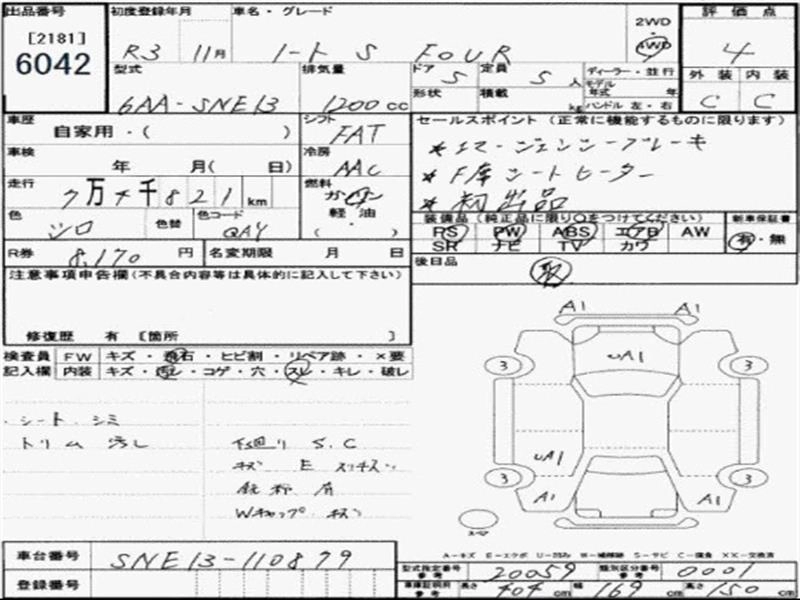 出品番号
[2181]
6042
初度登録年月
R3 11月
車名・グレード
ノート S FOUR
2WD
・
4WD
評価点
4
外装 内装
C C
型式
6AA-SNE13
排気量
1200cc
ドア 5
定員 5人
形状
積載 kg
ディーラー・並行
モデル年式 年
ハンドル 左・右
車歴
自家用・( )
シフト
FAT
車検
年 月( 日)
冷房
AAC
走行
7万 千821km
燃料
ガソリン
軽油
・
( )
色
シロ
色替
色コード
QAY
R券
8,170円
名変期限 月 日
セールスポイント(正常に機能するものに限ります)
*エマージェンシーブレーキ
*F席シートヒーター
*初出品
装備品(純正品に限り○をつけてください)
PS PW ABS エアB AW
SR ナビ TV カワ
新車保証書
有・無
後日品
取
注意事項申告欄(不具合内容等は具体的に記入して下さい)
修復歴 有 [箇所 ]
検査員記入欄
FW キズ・飛石・ヒビ割・リペア跡・×要
内装 キズ・汚レ・コゲ・穴・スレ・キレ・破レ
・シート シミ
トリム 汚レ
下廻り S.C
キズ E
Wキャップ キズ
A1 A1
UA1
3 3
UA1
3 3
A1 A1
A-キズ E-エクボ U-凹み W-補修跡 S-サビ C-腐食 XX-交換済
車台番号
SNE13-110879
登録番号
型式指定番号
参考
20059
類別区分番号
参考
0001
車庫証明用
参考
長さ 404cm 幅 169cm 高さ 150cm